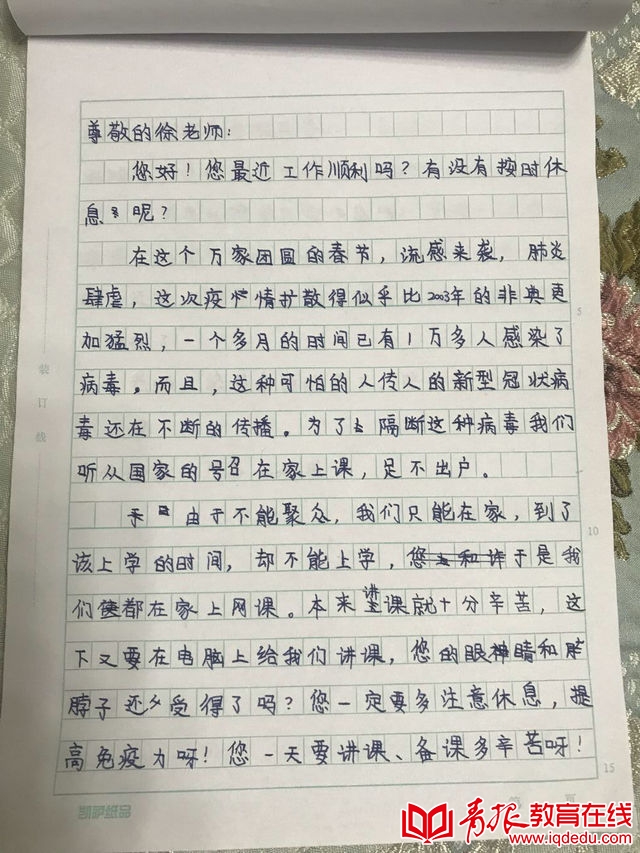 尊敬的徐老师：
您好！您最近工作顺利吗？有没有按时休
息呢？
在这个万家团圆的春节，流感来袭，肺炎
肆虐，这次疫情扩散得似乎比2003年的非典更
加猛烈，一个多月的时间已有1万多人感染了
病毒。而且，这种可怕的人传人的新型冠状病
毒还在不断的传播。为了隔断这种病毒我们
听从国家的号召在家上课，足不出户。
由于不能聚众，我们只能在家，到了
该上学的时间，却不能上学，于是我
们都在家上网课。本来讲课就十分辛苦，这
下又要在电脑上给我们讲课，您的眼睛和
脖子还受得了吗？您一定要多注意休息，提
高免疫力呀！您一天要讲课、备课多辛苦呀！
装订线
5
10
15
第 页
凯萨纸品
青报教育在线
www.iqdedu.com